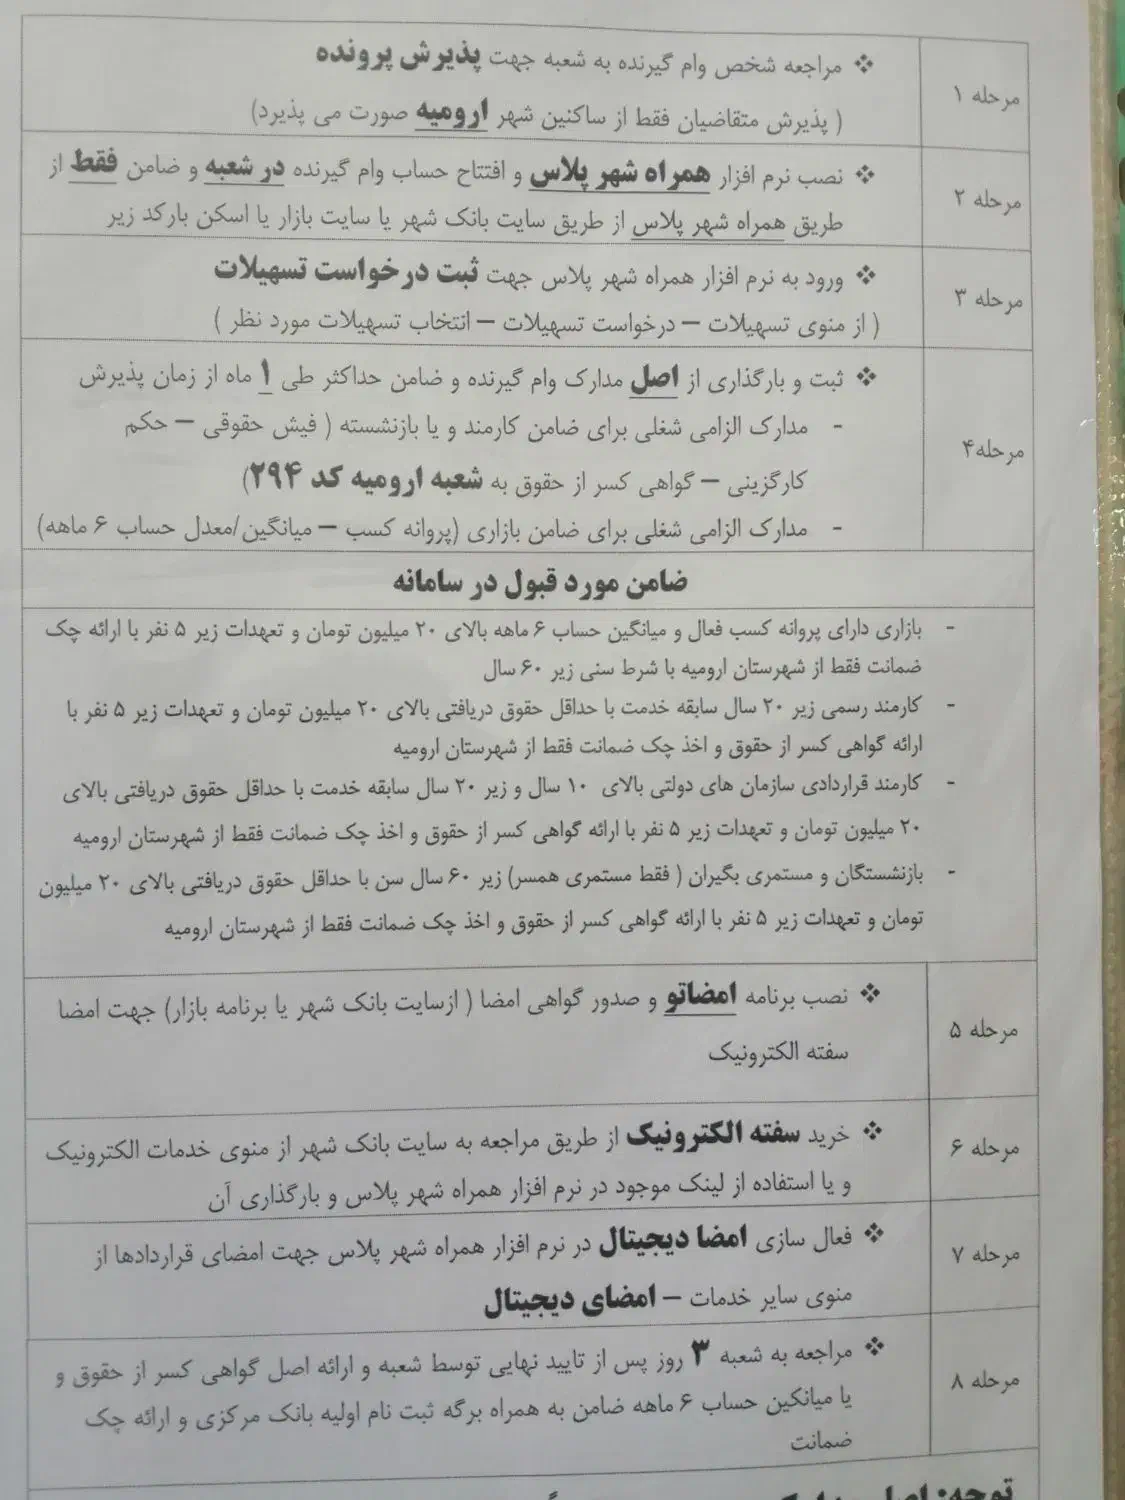 مرحله ۱
❖ مراجعه شخص وام گیرنده به شعبه جهت پذیرش پرونده
( پذیرش متقاضیان فقط از ساکنین شهر ارومیه صورت می پذیرد)
مرحله ۲
❖ نصب نرم افزار همراه شهر پلاس و افتتاح حساب وام گیرنده در شعبه و ضامن فقط از
طریق همراه شهر پلاس از طریق سایت بانک شهر یا سایت بازار یا اسکن بارکد زیر
مرحله ۳
❖ ورود به نرم افزار همراه شهر پلاس جهت ثبت درخواست تسهیلات
( از منوی تسهیلات – درخواست تسهیلات – انتخاب تسهیلات مورد نظر )
مرحله۴
❖ ثبت و بارگذاری از اصل مدارک وام گیرنده و ضامن حداکثر طی ۱ ماه از زمان پذیرش
- مدارک الزامی شغلی برای ضامن کارمند و یا بازنشسته ( فیش حقوقی – حکم
کارگزینی – گواهی کسر از حقوق به شعبه ارومیه کد ۲۹۴)
- مدارک الزامی شغلی برای ضامن بازاری (پروانه کسب – میانگین/معدل حساب ۶ ماهه)
ضامن مورد قبول در سامانه
- بازاری دارای پروانه کسب فعال و میانگین حساب ۶ ماهه بالای ۲۰ میلیون تومان و تعهدات زیر ۵ نفر با ارائه چک
ضمانت فقط از شهرستان ارومیه با شرط سنی زیر ۶۰ سال
- کارمند رسمی زیر ۲۰ سال سابقه خدمت با حداقل حقوق دریافتی بالای ۲۰ میلیون تومان و تعهدات زیر ۵ نفر با
ارائه گواهی کسر از حقوق و اخذ چک ضمانت فقط از شهرستان ارومیه
- کارمند قراردادی سازمان های دولتی بالای ۱۰ سال و زیر ۲۰ سال سابقه خدمت با حداقل حقوق دریافتی بالای
۲۰ میلیون تومان و تعهدات زیر ۵ نفر با ارائه گواهی کسر از حقوق و اخذ چک ضمانت فقط از شهرستان ارومیه
- بازنشستگان و مستمری بگیران ( فقط مستمری همسر) زیر ۶۰ سال سن با حداقل حقوق دریافتی بالای ۲۰ میلیون
تومان و تعهدات زیر ۵ نفر با ارائه گواهی کسر از حقوق و اخذ چک ضمانت فقط از شهرستان ارومیه
مرحله ۵
❖ نصب برنامه امضاتو و صدور گواهی امضا ( ازسایت بانک شهر یا برنامه بازار) جهت امضا
سفته الکترونیک
مرحله ۶
❖ خرید سفته الکترونیک از طریق مراجعه به سایت بانک شهر از منوی خدمات الکترونیک
و یا استفاده از لینک موجود در نرم افزار همراه شهر پلاس و بارگذاری آن
مرحله ۷
❖ فعال سازی امضا دیجیتال در نرم افزار همراه شهر پلاس جهت امضای قراردادها از
منوی سایر خدمات – امضای دیجیتال
مرحله ۸
❖ مراجعه به شعبه ۳ روز پس از تایید نهایی توسط شعبه و ارائه اصل گواهی کسر از حقوق و
یا میانکین حساب ۶ ماهه ضامن به همراه برگه ثبت نام اولیه بانک مرکزی و ارائه چک
ضمانت
توجه: اصل